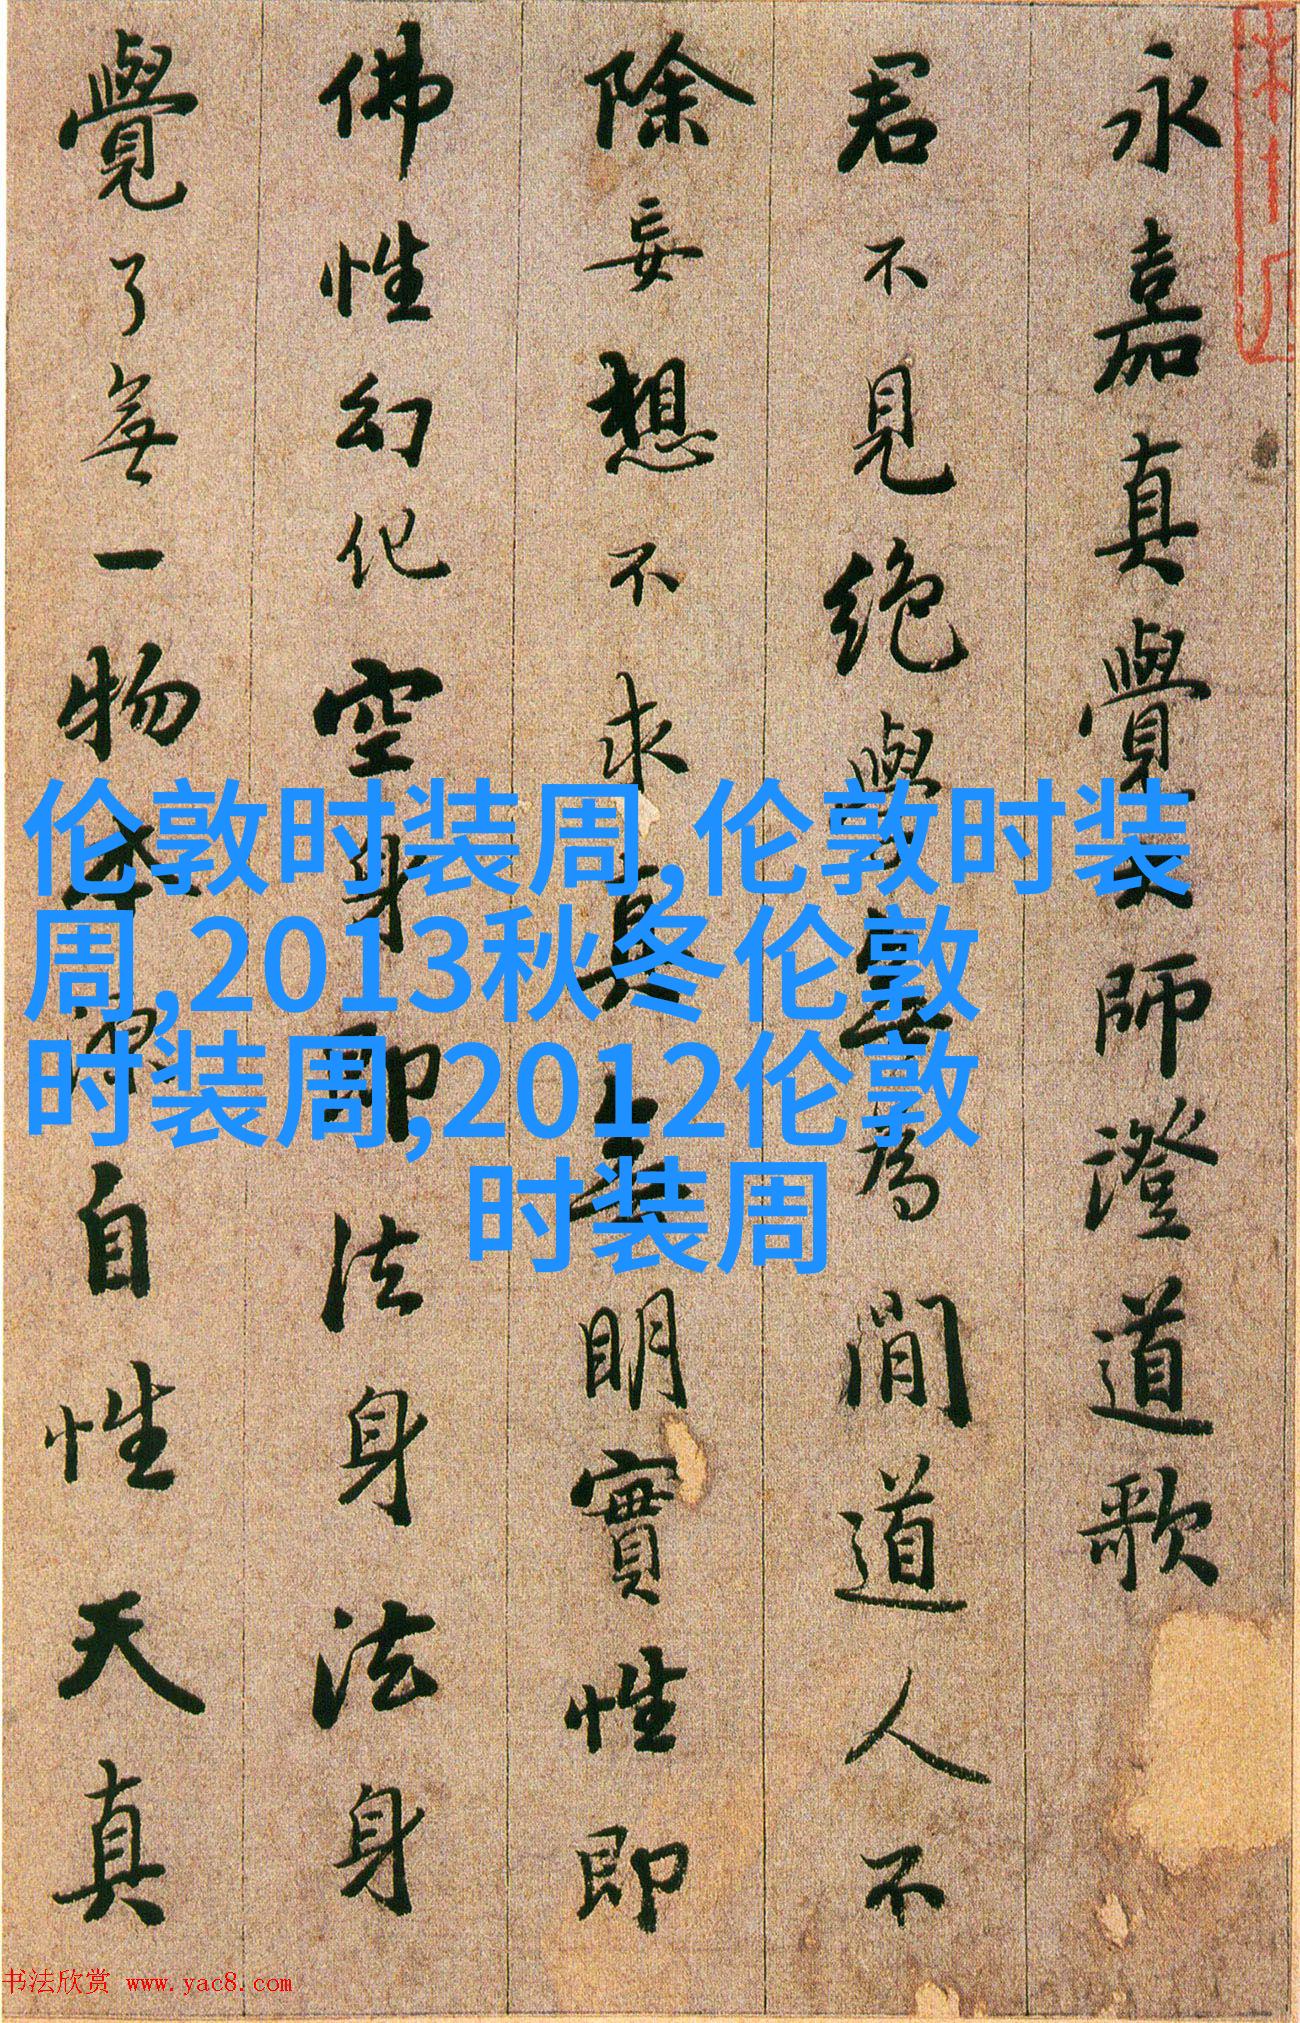 永嘉真覺大師澄道歌
君不見絶學無為閒道人不
除妄想不求真無明實性即
佛性幻化空身即法身法身
覺了無一物本源自性天真
伦敦时装周,伦敦时装
周,2013秋冬伦敦
时装周,2012伦敦
时装周
书法欣赏 www.yac8.com